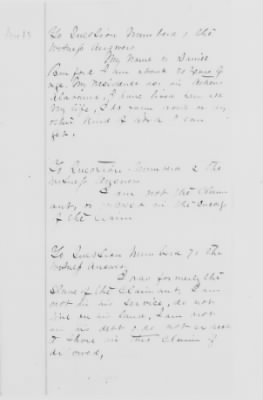 To Question Number 1 the
witness answers
My name is Daniel
I am about 70 years of
age. My residence is in
Alabama, I have lived here all
my life, I do some work or any
other kind of work I can
get.
To Question Number 2 the
witness answers
I am not the Claim
ant, or
of the Claim
To Question Number 7 the
witness answers
I was formerly the
Slave of the Claimant, I am
not in his service, do not
live on his land, I am not
in his debt & do not expect
to share in this Claim if
allowed,